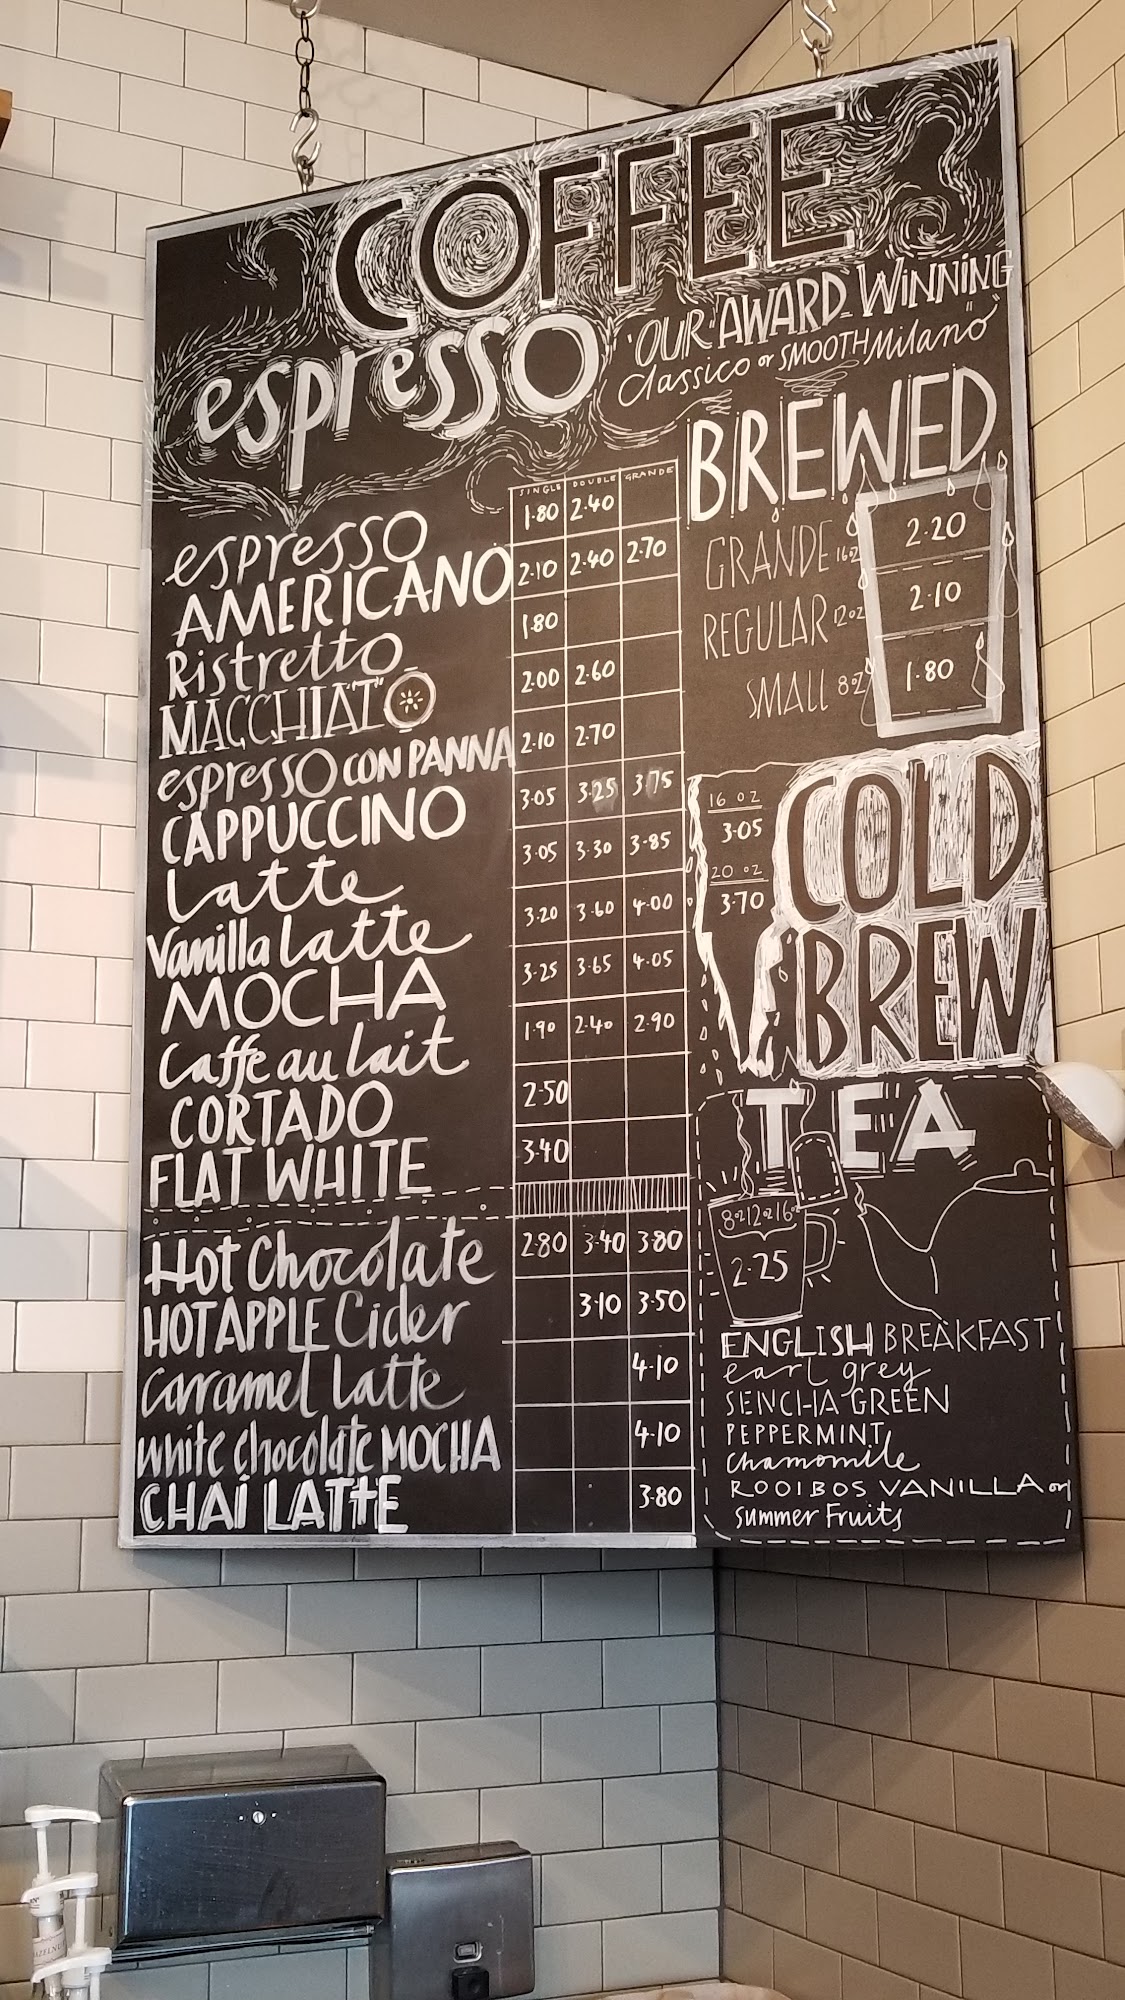 COFFEE
espresso
"OUR "AWARD-WINNING
Classico or SMOOTH Milano"
SINGLE DOUBLE GRANDE
espresso 1.80 2.40
AMERICANO 2.10 2.40 2.70
Ristretto 1.80
MACCHIATO 2.00 2.60
espresso CON PANNA 2.10 2.70
CAPPUCCINO 3.05 3.25 3.75
Latte 3.05 3.30 3.85
Vanilla Latte 3.20 3.60 4.00
MOCHA 3.25 3.65 4.05
Caffe au lait 1.90 2.40 2.90
CORTADO 2.50
FLAT WHITE 3.40
Hot Chocolate 2.80 3.40 3.80
HOT APPLE Cider 3.10 3.50
Caramel Latte 4.10
white chocolate MOCHA 4.10
CHAI LATTE 3.80
BREWED
GRANDE 16oz 2.20
REGULAR 12oz 2.10
SMALL 8oz 1.80
COLD
BREW
16 oz
3.05
20 oz
3.70
TEA
8oz 12oz 16oz
2.25
ENGLISH BREAKFAST
earl grey
SENCHA GREEN
PEPPERMINT
chamomile
ROOIBOS VANILLA or
summer Fruits